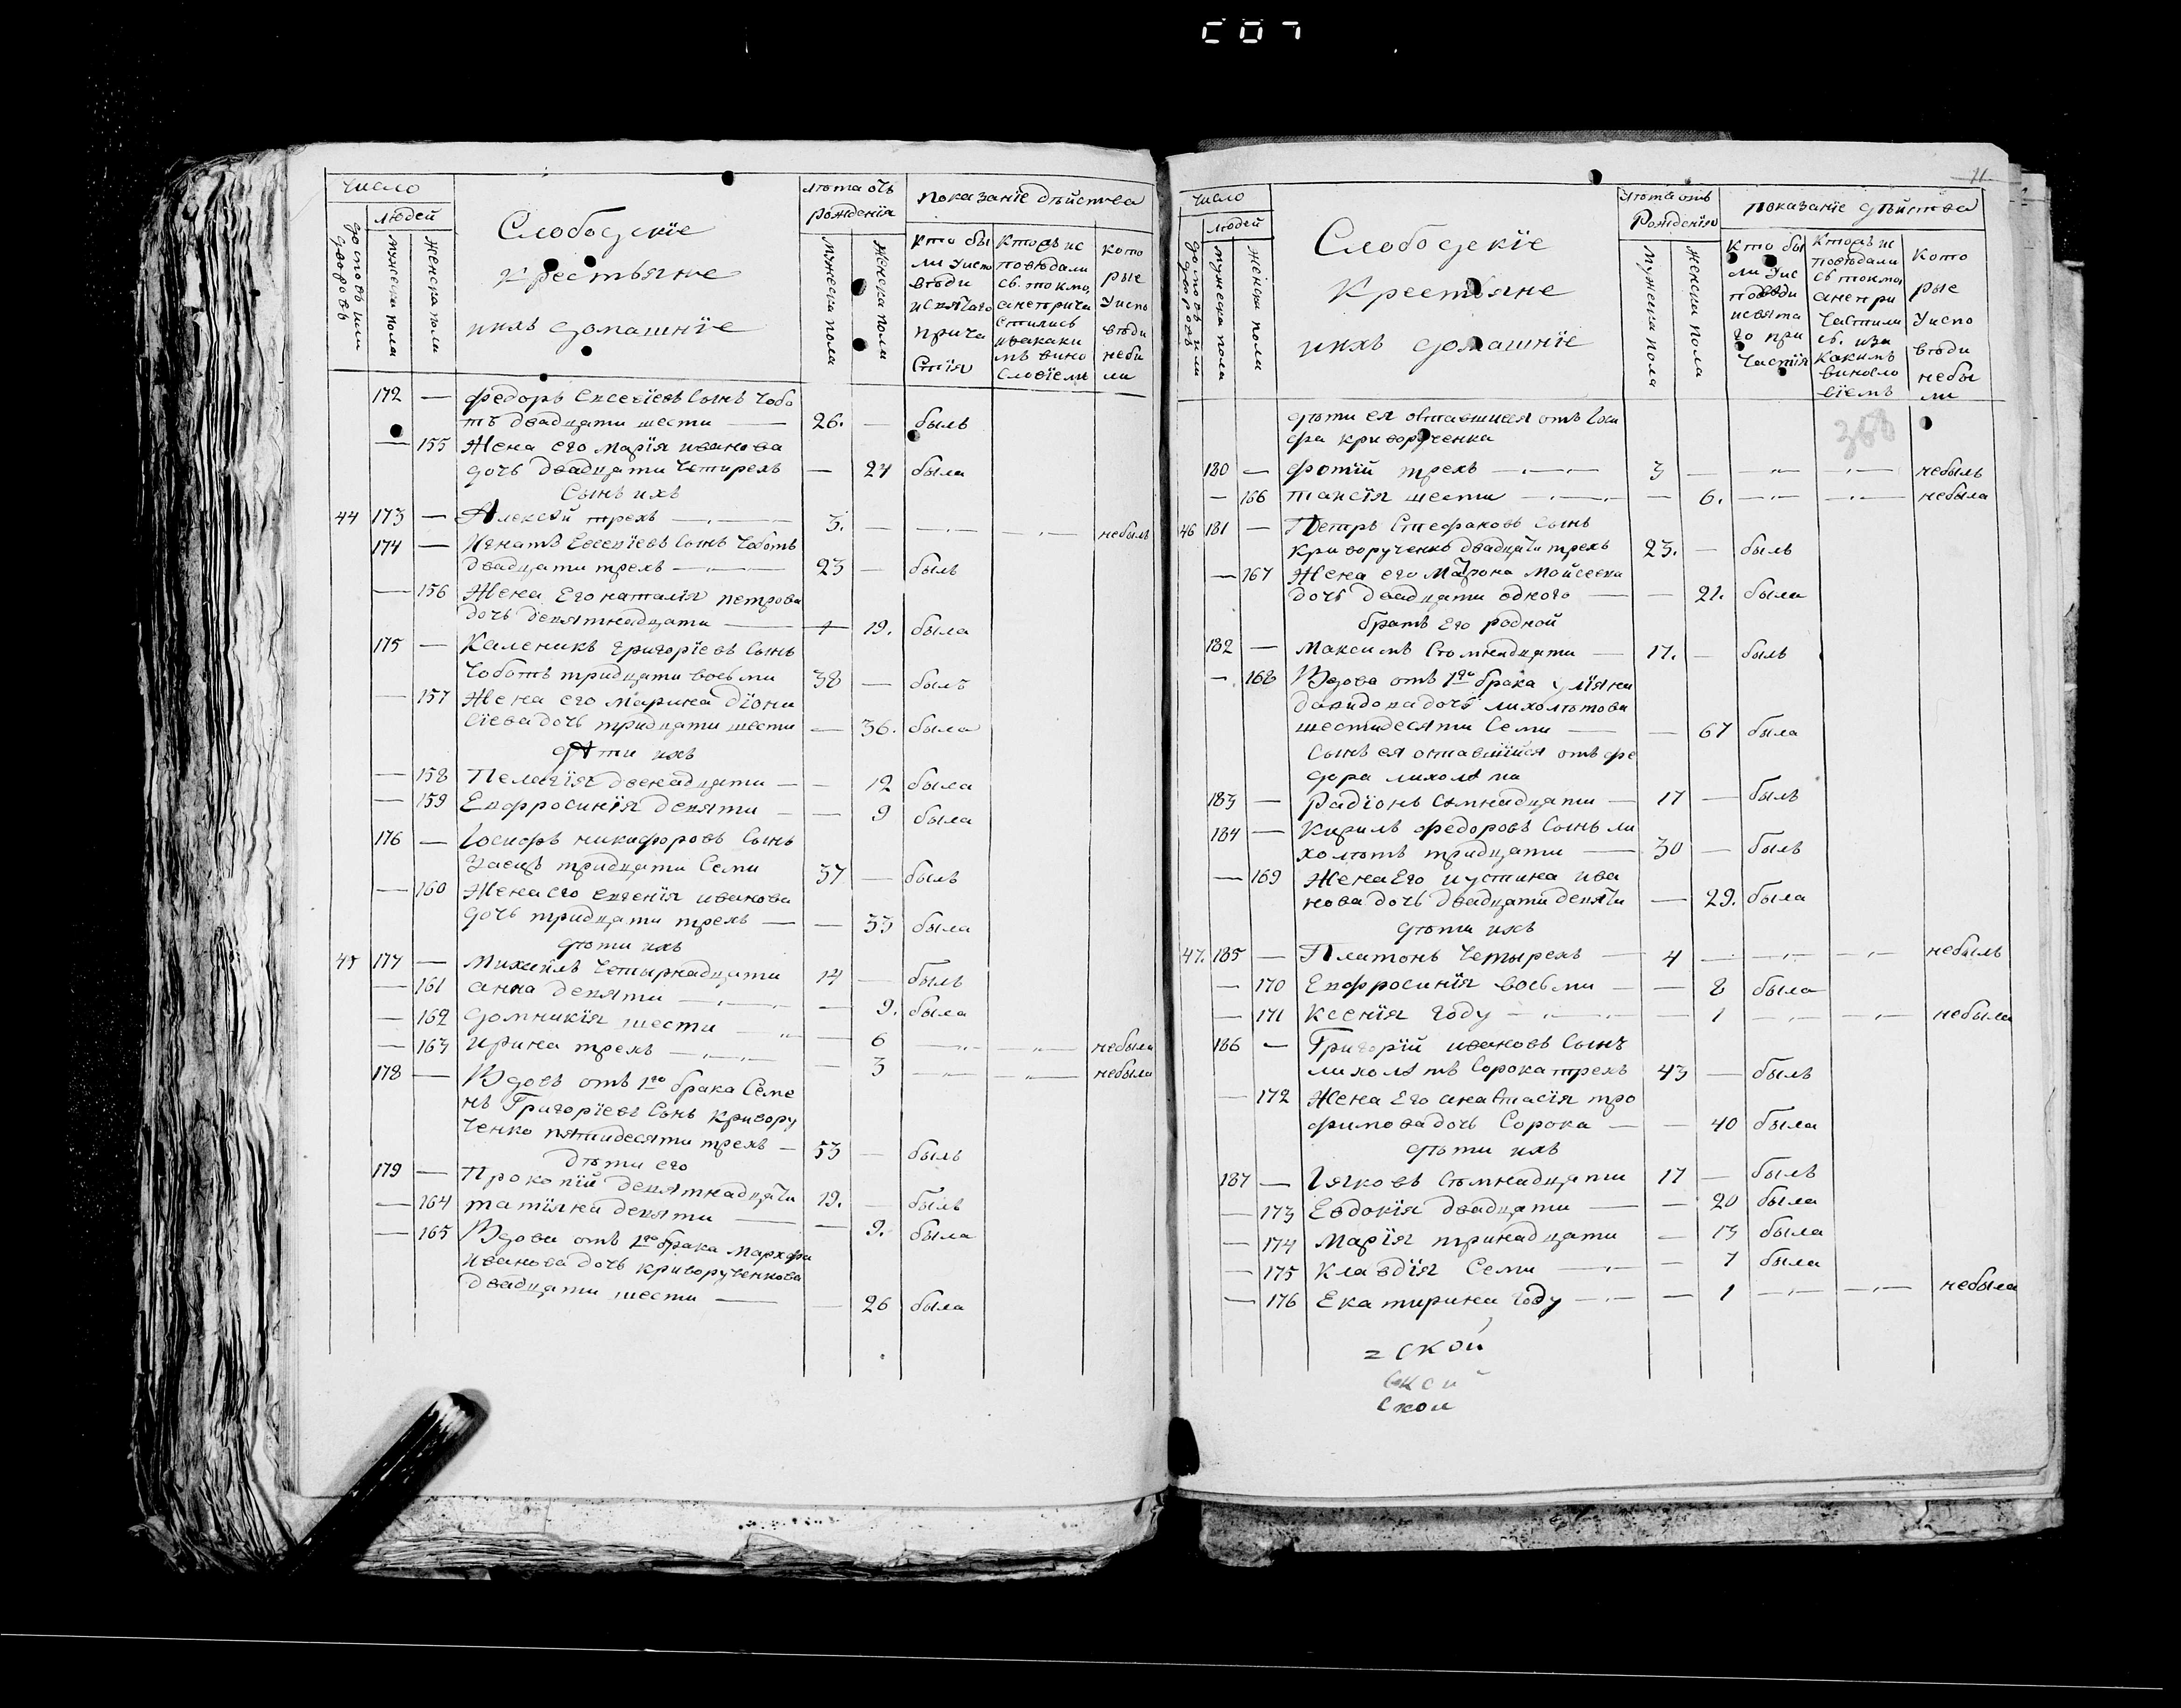 Число
людей
до повъ или дворовъ
Мужеска пола
Женска пола
Слободскїе
крестьяне
ихъ домашнїе
лѣта отъ
рожденїя
Мужеска пола
Женска пола
показанїе дѣйства
Кто бы
ли Уиспо
вѣди
исвятаго
прича
стїя
Ктоѣ ис
повѣдали
сь. токмо,
анеприча
стились
изакаки
мъ вино
словїемъ
кото
рые
Уиспо
вѣди
небы
ли
172 — федоръ Евсевїевъ Сынъ Чобо
тъ двадцати шести — 26. — былъ
— 155 Жена его марїя иванова
дочь двадцати Четирехъ — 24 была
Сынъ ихъ
44 173 — Алексѣй трехъ — 3. — — небылъ
174 — Игнатъ Евсевїевъ Сынъ Чоботъ
двадцати трехъ — 23 — былъ
— 156 Жена Его наталїя петрова
дочь девятнадцати — 19. была
175 — Каленикъ григорїевъ Сынъ
Чоботъ тридцати восьми 38 — былъ
— 157 Жена его марина дїони
сїева дочь тридцати шести — 36. была
дѣти ихъ
— 158 Пелагїя двенадцати — 12 была
— 159 Евфросинїя девяти — 9 была
176 — Іосифъ никифоровъ Сынъ
Заецъ тридцати Семи 37 — былъ
— 160 Жена его евгенїя иванова
дочь тридцати трехъ — 33 была
дѣти ихъ
45 177 — Михаилъ Четырнадцати 14 — былъ
— 161 анна девяти — 9. была
— 162 домникїя шести — 6 — — небыла
— 163 ирина трехъ — 3 — — небыла
178 — Вдовъ отъ 1го брака Семе
нъ Григорїевъ Сынъ кривору
ченко пятидесяти трехъ — 53 — былъ
дѣти его
179 — Прокопїй девятнадцати 19. — былъ
— 164 татїяна девяти — 9. была
— 165 Вдова отъ 1го брака марфа
иванова дочь криворученкова
двадцати шести — 26 была
11
Число
людей
Мужеска пола
женски пола
Слободскїе
Крестьяне
ихъ домашнїе
лѣта отъ
Рожденїя
Мужеска пола
женски пола
показанїе дѣйства
Кто бы
ли Уис
повѣди
исвята
го при
Частїя
Ктоѣ ис
повѣдали
сь токмо
анепри
частили
сь. иза
какимъ
виносло
вїемъ
Кото
рые
Уиспо
вѣди
небы
ли
368
дѣти ея оставшїися отъ Іоси
фа криворученка
180 — фотїй трехъ — 3 — — — небылъ
— 166 таисїя шести — 6. — — небыла
46 181 — Петръ Стефановъ Сынъ
криворученко двадцати трехъ 23. — былъ
— 167 Жена его Матрона Мойсеева
дочь двадцати одного — 21. была
братъ Его родной
182 — Максимъ Семнадцати — 17. — былъ
— 168 Вдова отъ 1го брака улїяна
давидова дочь лихолѣтова
шестидесяти Семи — 67 была
Сынъ ея оставшїйся отъ фе
дора лихолѣта
183 — Радїонъ Семнадцати — 17 — былъ
184 — Кирилъ федоровъ Сынъ ли
холѣтъ тридцати — 30 — былъ
— 169 Жена Его иустина ива
нова дочь двадцати девяти — 29. была
дѣти ихъ
47. 185 — Платонъ Четырехъ — 4 — — — небылъ
— 170 Евфросинїя восьми — 8 была
— 171 Ксенїя Году — 1 — — небыла
186 — Григорїй ивановъ Сынъ
лихолѣтъ Сорока трехъ 43 — былъ
— 172 Жена Его анастасїя тро
фимова дочь Сорока — 40 была
дѣти ихъ
187 — Іяковъ Семнадцати 17 — былъ
— 173 Евдокїя двадцати — 20 была
— 174 Марїя тринадцати — 13 была
— 175 Клавдїя Семи — 7 была
— 176 Екатирина Году — 1 — — небыла
= ской
ской
ской